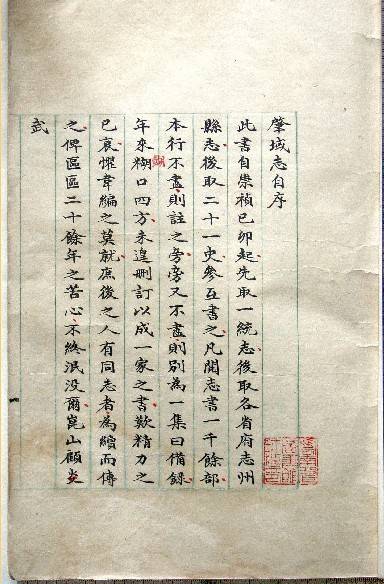 肈域志自序
此書自崇禎己卯起先取一統志後取各省府志州
縣志後取二十一史參互書之凡閱志書一千餘部
本行不盡則註之旁旁又不盡則別為一集曰備錄
年來糊口四方未遑刪訂以成一家之書歎精力之
已衰懼韋編之莫就庶後之人有同志者為續而傳
之俾區區二十餘年之苦心不終泯没爾崑山顧炎
武